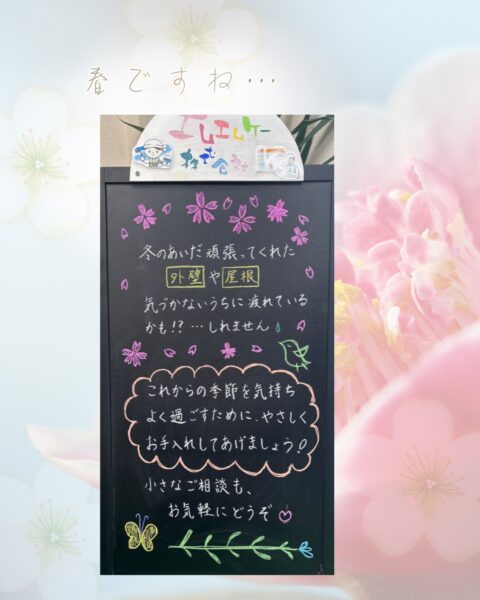 春ですね…
エムエムケー
株式会社
冬のあいだ頑張ってくれた
外壁や屋根
気づかないうちに疲れている
かも!?…しれません
これからの季節を気持ち
よく過ごすために、やさしく
お手入れしてあげましょう!
小さなご相談も、
お気軽にどうぞ♡